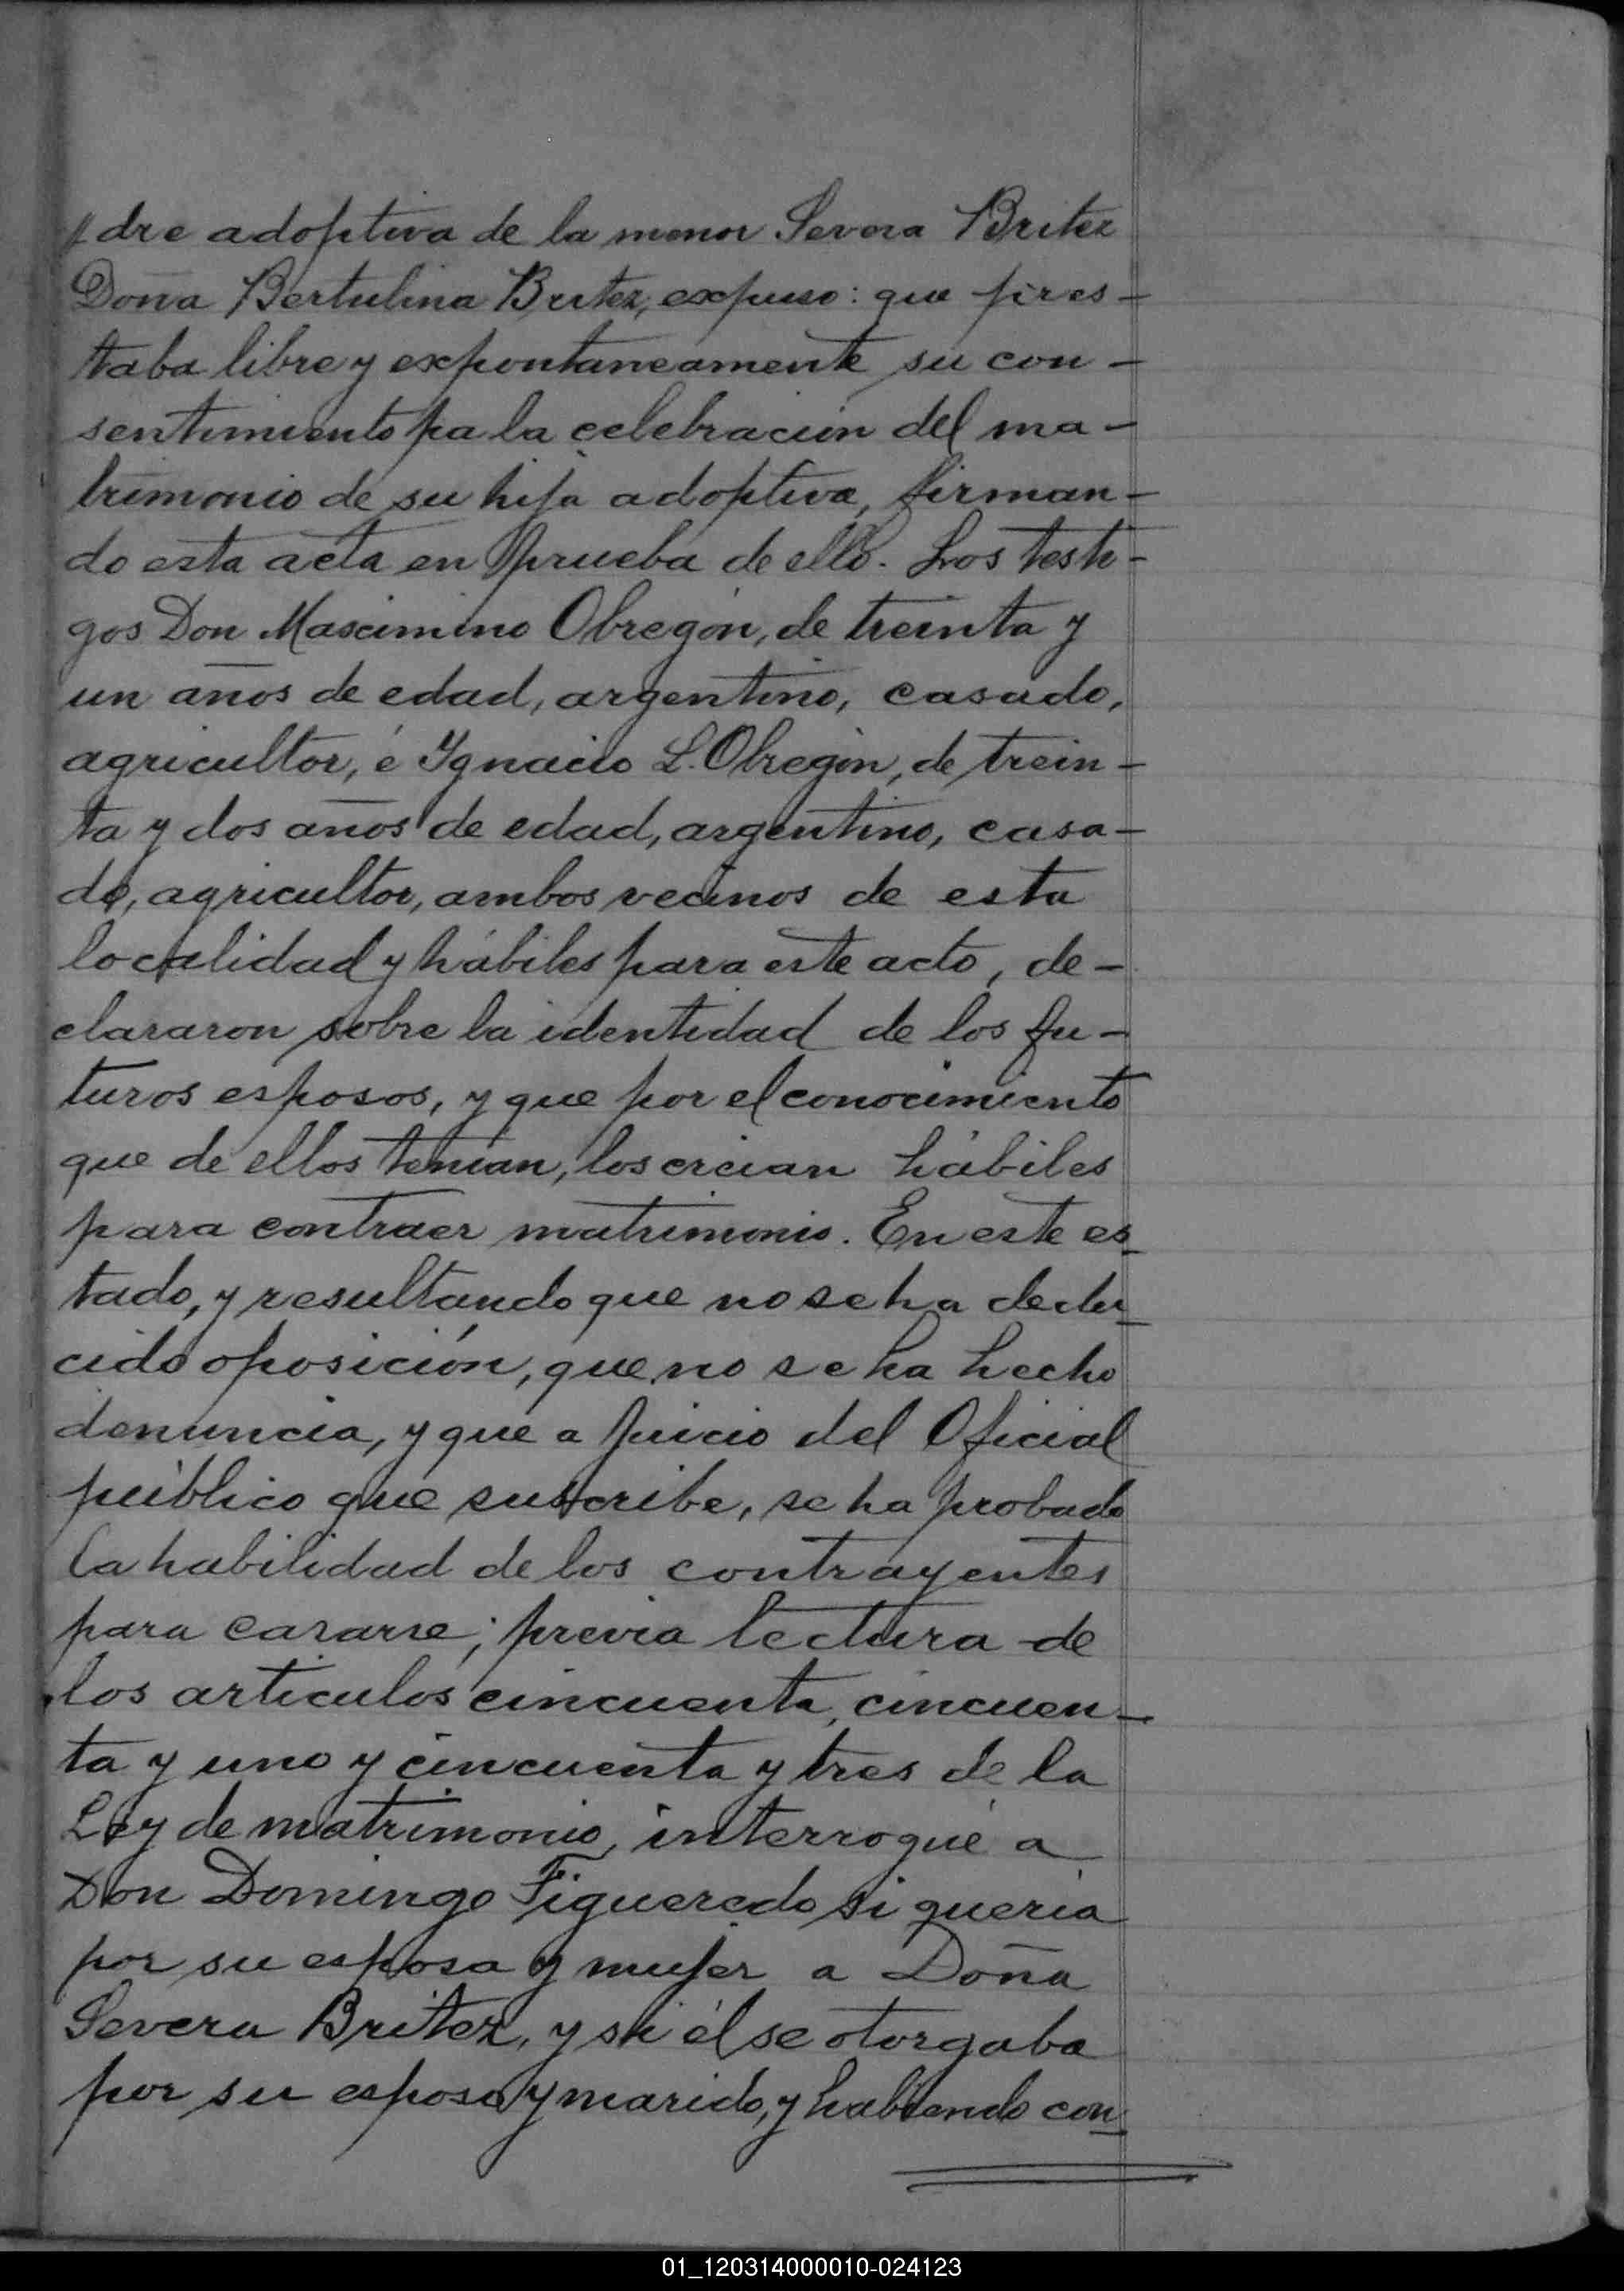 〃dre adoptiva de la menor Severa Britez
Doña Bertulina Britez, expuso: que pres-
taba libre y expontaneamente su con-
sentimiento pa la celebración del ma-
trimonio de su hija adoptiva, firman-
do esta acta en prueba de ello. Los testi-
gos Don Mascimino Obregón, de treinta y
un años de edad, argentino, casado,
agricultor, é Ygnacio L. Obregón, de trein-
ta y dos años de edad, argentino, casa-
do, agricultor, ambos vecinos de esta
localidad y hábiles para este acto, de-
clararon sobre la identidad de los fu-
turos esposos, y que por el conocimiento
que de ellos tenían, los creían hábiles
para contraer matrimonio. En este es-
tado, y resultando que no se ha dedu-
cido oposición, que no se ha hecho
denuncia, y que a juicio del Oficial
público que suscribe, se ha probado
la habilidad de los contrayentes
para casarse; previa lectura de
los artículos cincuenta, cincuen-
ta y uno y cincuenta y tres de la
Ley de matrimonio, interrogué a
Don Domingo Figueredo si quería
por su esposa y mujer a Doña
Severa Britez, y si él se otorgaba
por su esposo y marido, y habiendo con-
01_120314000010-024123